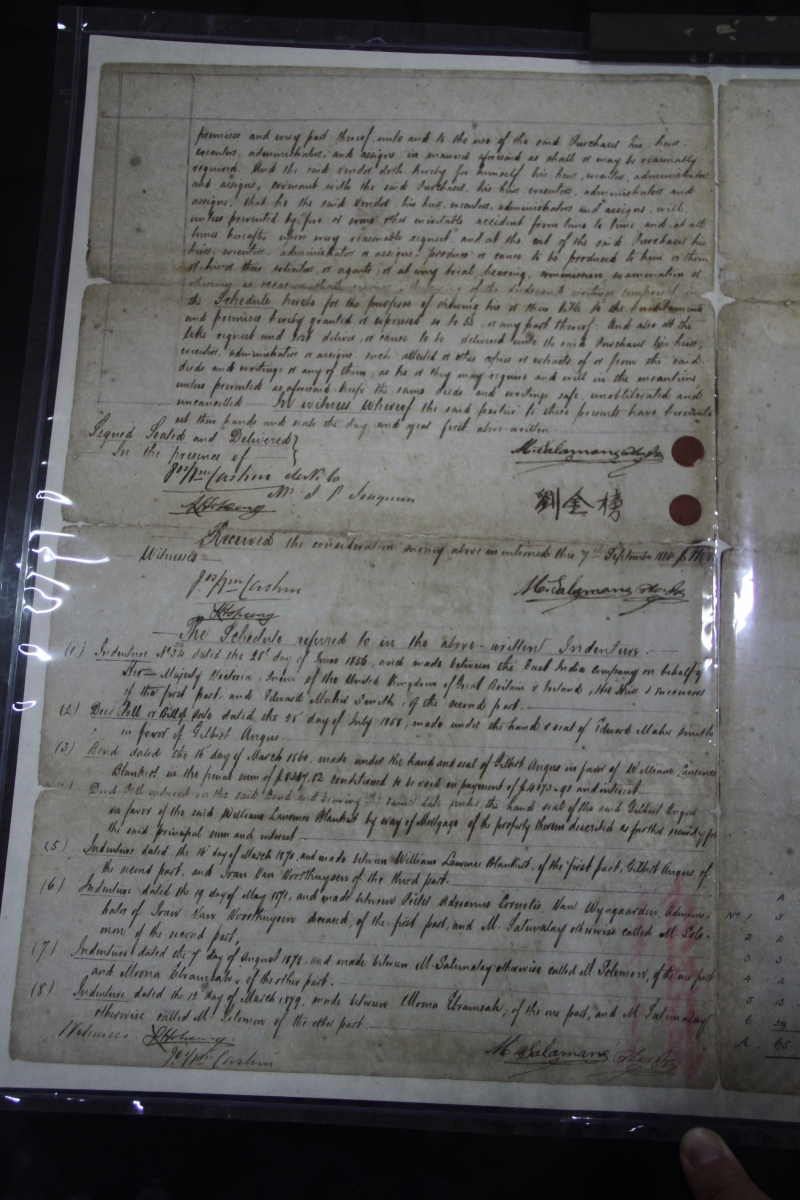 premises and every part thereof, unto and to the use of the said Purchaser his heirs,
executors, administrators, and assigns, in manner aforesaid as shall or may be reasonably
required. And the said Vendor doth hereby for himself his heirs, executors, administrators
and assigns, covenant with the said Purchaser, his heirs executors, administrators and
assigns, that he the said Vendor, his heirs, executors, administrators and assigns, will,
unless prevented by fire or some other inevitable accident from time to time, and at all
times hereafter upon every reasonable request, and at the cost of the said Purchaser his
heirs, executors, administrators or assigns, produce or cause to be produced to him or them
or his or their solicitors, or agents, or at any trial, hearing, commission, examination or
the Schedule hereto for the purpose of shewing his or their title to the hereditaments
and premises hereby granted or expressed so to be, or any part thereof. And also at the
like request and cost deliver, or cause to be delivered unto the said Purchaser his heirs,
executors, administrators or assigns such attested or other copies or extracts of or from the said
deeds and writings or any of them, as he or they may require and will in the meantime
unless prevented as aforesaid keep the same deeds and writings safe, unobliterated and
uncancelled. In witness whereof the said parties to these presents have hereunto
set their hands and seals the day and year first above written
Signed Sealed and Delivered
In the presence of
Cashin clerk to
Mr J. P. Joaquim
M. Salamana
劉金榜
Received the consideration money above mentioned this 7th September
Witnesses
Cashin
M. Salamana
The Schedule referred to in the above-written Indenture.
(1) Indenture No 34 dated the 25th day of June 1856, and made between the East India Company on behalf of
Her Majesty Victoria, Queen of the United Kingdom of Great Britain & Ireland, Her Heirs & Successors
of the first part, and Edward Maher Smith, of the second part.
(2) Deed Poll or Bill of Sale dated, the 25 day of July 1858, made under the hand & seal of Edward Maher Smith
in favor of Gilbert Angus.
(3) Bond dated the 16 day of March 1860, made under the hand and seal of Gilbert Angus in favor of William Laurence
Blankert in the penal sum of $ conditioned to be void on payment of $ and interest
Deed Poll endorsed on the said Bond and bearing the same date under the hand seal of the said Gilbert Angus
in favor of the said William Laurence Blankert by way of Mortgage of the property therein described as further security for
the said principal sum and interest
(5) Indenture dated the 16 day of March 1870, and made between William Laurence Blankert, of the first part, Gilbert Angus, of
the second part, and Ivan Van Voorthuysen of the third part.
(6) Indenture dated the 19 day of May 1871, and made between Pieter Adrianus Cornelis Van Wyngaarden, Adminis-
trator of Ivan Van Voorthuysen deceased, of the first part, and M. Satumalay otherwise called M. Solo-
mon of the second part.
(7) Indenture dated the 7 day of August 1878, and made between M. Satumalay otherwise called M. Solomon, of the one part
and Moona Ebramsah, of the other part.
(8) Indenture dated the 12 day of March 1879, made between Moona Ebramsah, of the one part, and M. Satumalay
otherwise called M. Solomon of the other part
Witnesses
Cashin
M. Salamana
A
No 1 3
2 2
3 3
4 2
5 13
6 39
A. 65